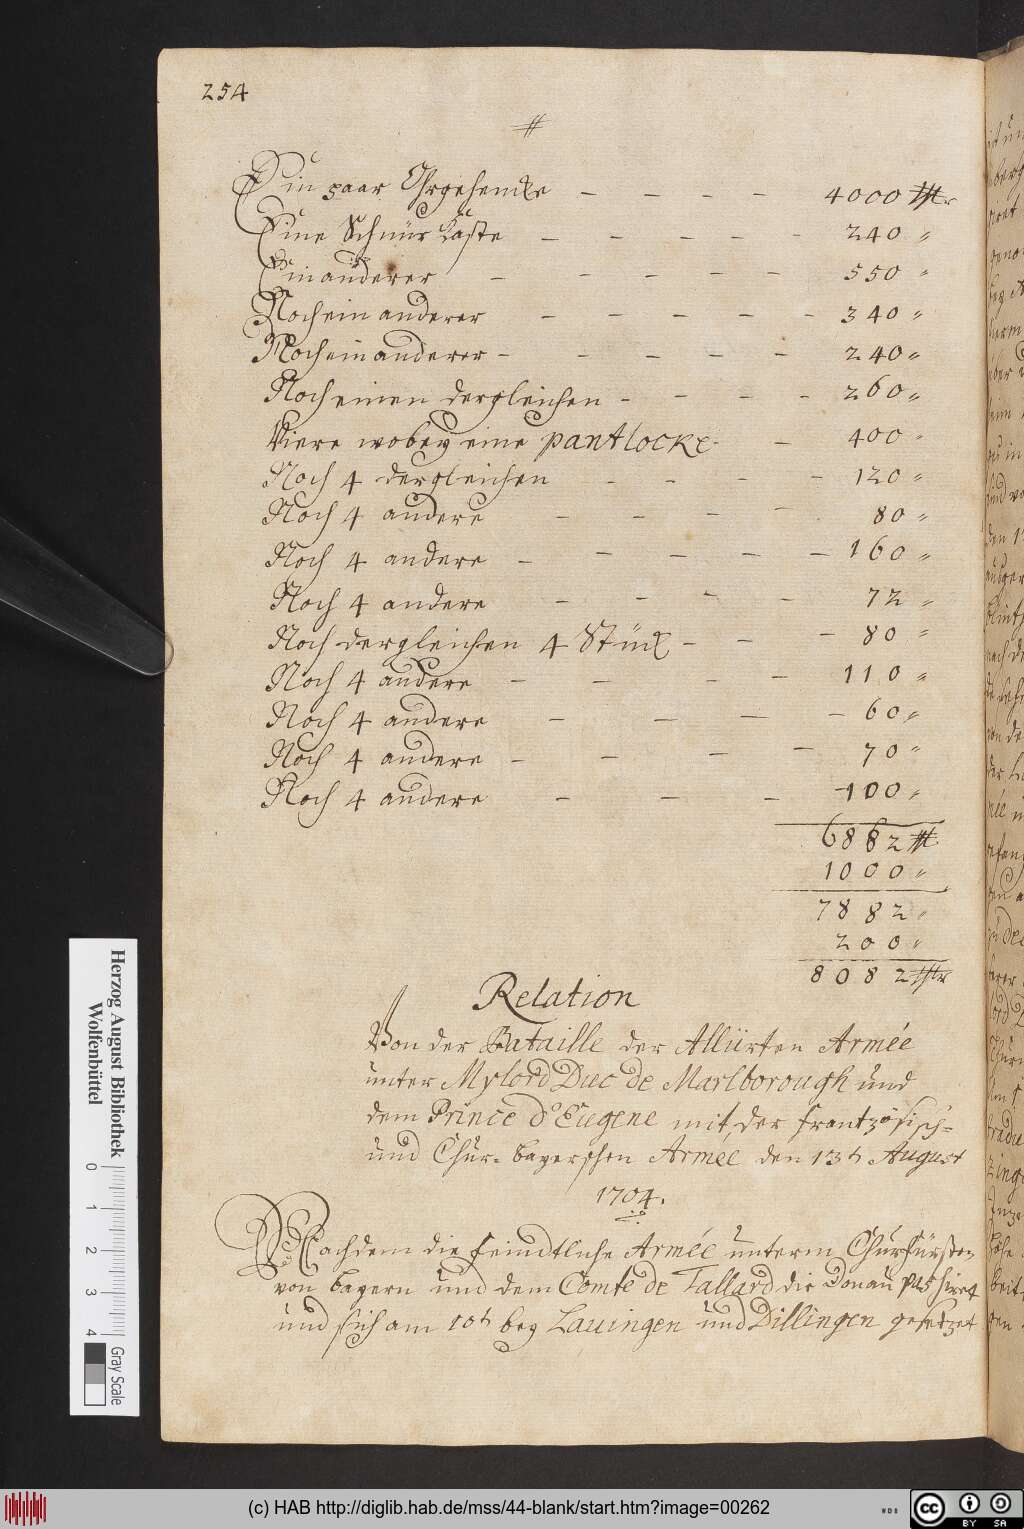 254
#
Ein paar Ohrgehencke – – – – 4000 Thlr
Eine Schnür Käste – – – – – 240 "
Ein anderer – – – – – 550 "
Noch ein anderer – – – – – 340 "
Noch ein anderer – – – – – 240 "
Noch einen dergleichen – – – – 260 "
Viere wobey eine pantlocke – – 400 "
Noch 4 dergleichen – – – – 120 "
Noch 4 andere – – – – 80 "
Noch 4 andere – – – – – 160 "
Noch 4 andere – – – – 72 "
Noch dergleichen 4 Stück – – – 80 "
Noch 4 andere – – – – 110 "
Noch 4 andere – – – – 60 "
Noch 4 andere – – – – 70 "
Noch 4 andere – – – 100 "
6882 Thl.
1000 "
7882 "
200 "
8082 Thlr
Relation
Von der Bataille der Alliirten Armée
unter Mylord Duc de Marlborough und
dem Prince d'Eugene mit der frantzösisch-
und Chur-bayerschen Armée, den 13t August
1704.
Nachdem die feindtliche Armée unterm Churfürsten
von Bayern und dem Comte de Tallard die Donau passiret
und sich am 10t bey Lauingen und Dillingen gesetzet
Herzog August Bibliothek
Wolfenbüttel
0 1 2 3 4
Gray Scale
(c) HAB http://diglib.hab.de/mss/44-blank/start.htm?image=00262
WDB
cc
BY SA